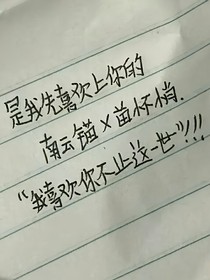 是我先喜欢上你的
南云锚×苗怀悄.
“我喜欢你不止这一世”!!!